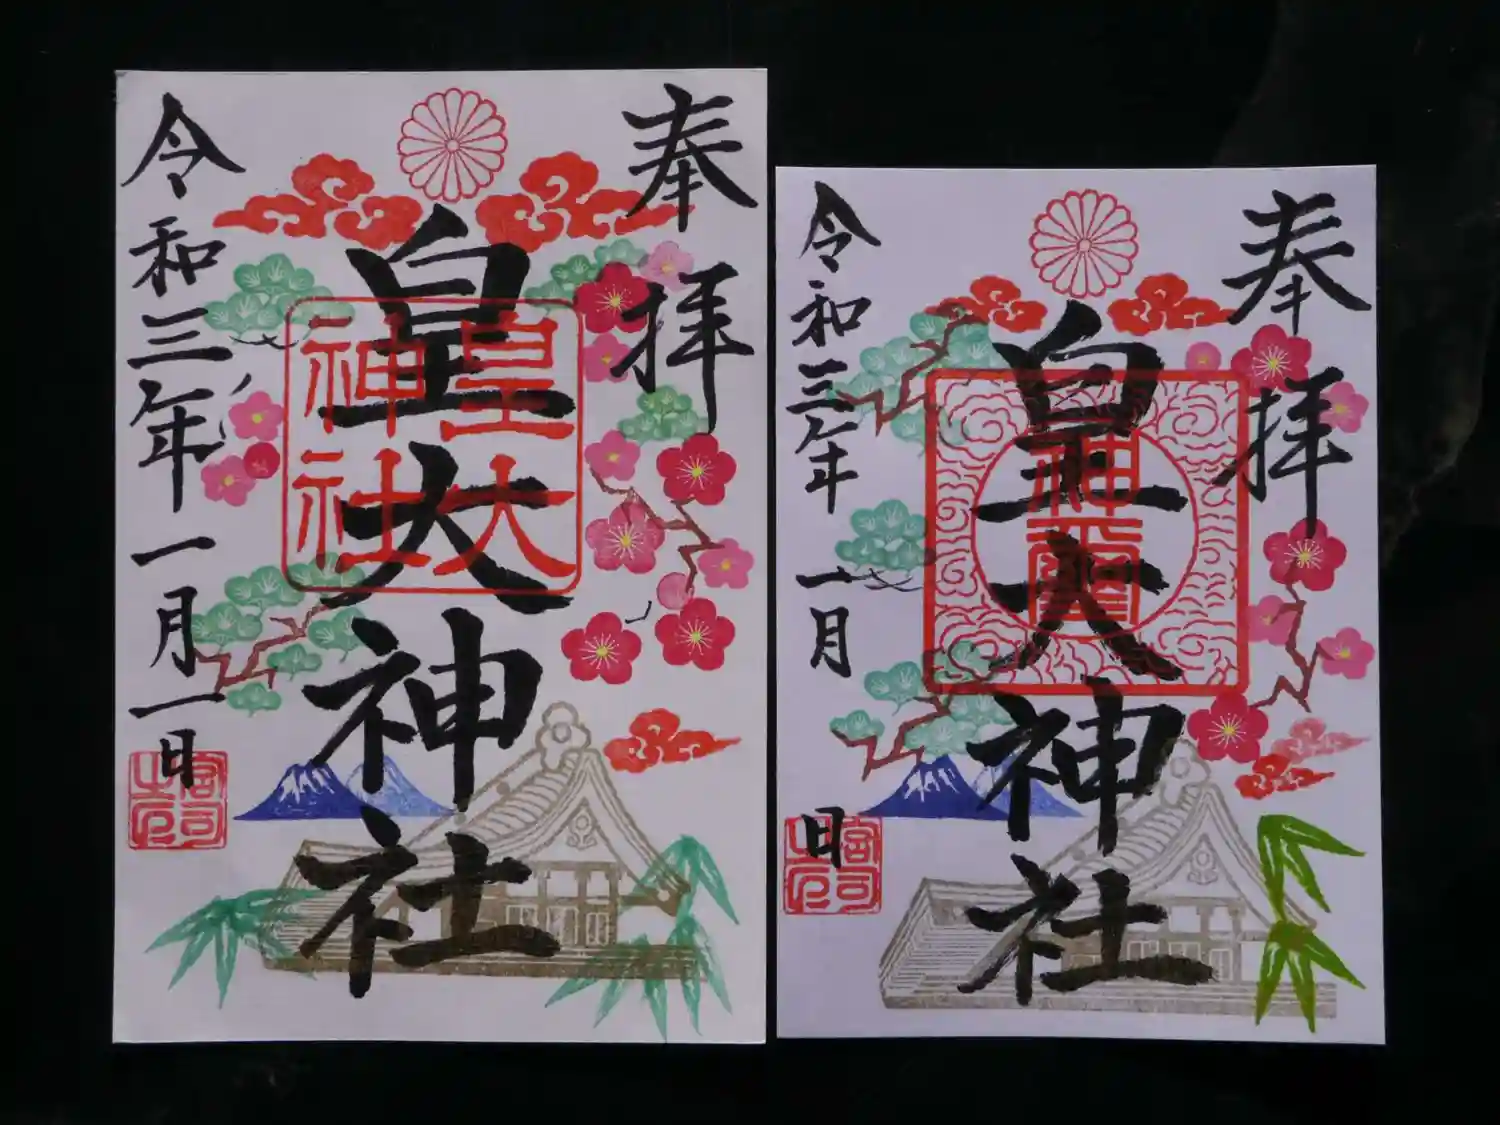 奉拝
皇大神社
皇大神社
令和三年一月一日
宮司之印
奉拝
皇大神社
神璽
令和三年一月 日
宮司之印